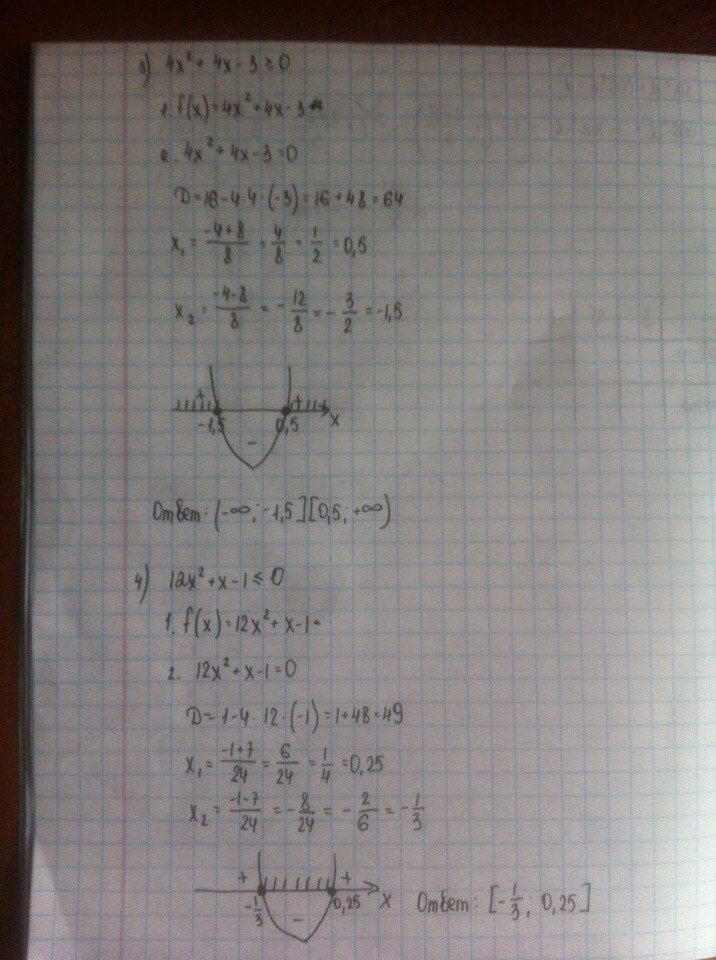 3) 4x² + 4x - 3 ≥ 0
1. f(x) = 4x² + 4x - 3
2. 4x² + 4x - 3 = 0
D = 16 - 4·4·(-3) = 16 + 48 = 64
x₁ = (-4+8)/8 = 4/8 = 1/2 = 0,5
x₂ = (-4-8)/8 = -12/8 = -3/2 = -1,5
+ +
-1,5 - 0,5 x
Ответ: (-∞; -1,5][0,5; +∞)
4) 12x² + x - 1 ≤ 0
1. f(x) = 12x² + x - 1
2. 12x² + x - 1 = 0
D = 1 - 4·12·(-1) = 1 + 48 = 49
x₁ = (-1+7)/24 = 6/24 = 1/4 = 0,25
x₂ = (-1-7)/24 = -8/24 = -2/6 = -1/3
+ +
-1/3 - 0,25 x
Ответ: [-1/3; 0,25]